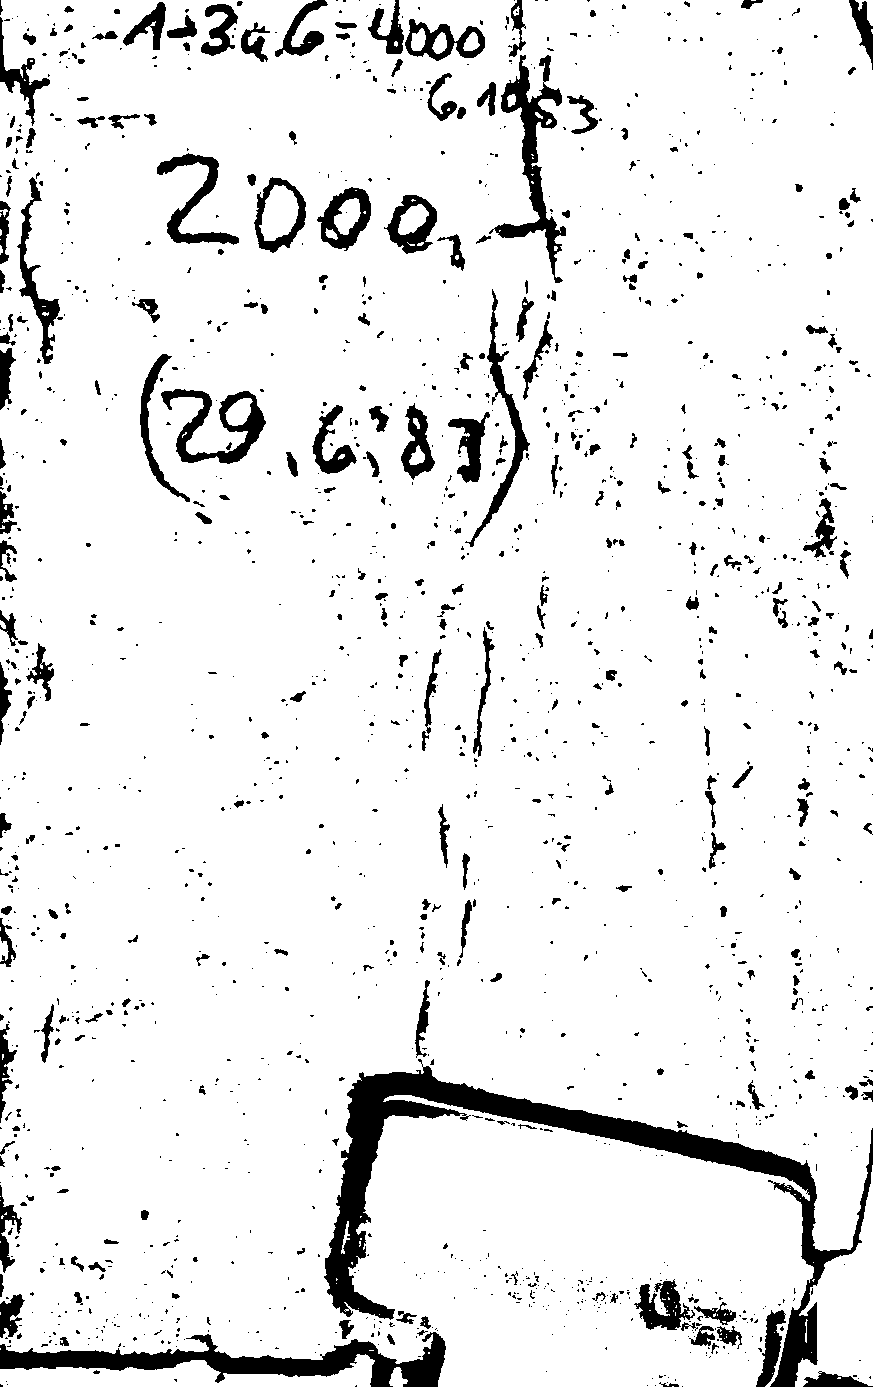 1→3u.6=4000
6.10.83
2000,-
(29.6.83)